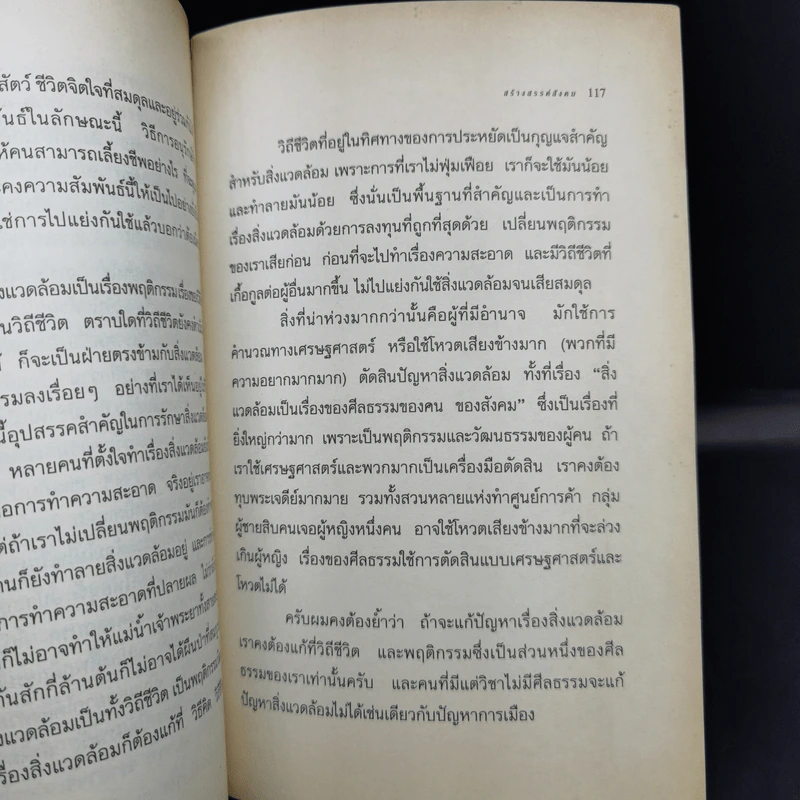 สัตว์ ชีวิตจิตใจที่สมดุลและอยู่
พันธ์ในลักษณะนี้ วิธีการ
ให้คนสามารถเลี้ยงชีพอย่างไร
คงความสัมพันธ์นี้ให้เป็นไปอย่าง
ใช่การไปแย่งกันใช้แล้วบอกว่า
งแวดล้อมเป็นเรื่องพฤติกรรม
นวิถีชีวิต ตราบใดที่วิถีชีวิต
ก็จะเป็นฝ่ายตรงข้ามกับสิ่งแวดล้อม
รมลงเรื่อยๆ อย่างที่เราได้เห็น
นี้อุปสรรคสำคัญในการรักษา
หลายคนที่ตั้งใจทำเรื่องสิ่งแวดล้อม
อการทำความสะอาด จริงอยู่
ต่ถ้าเราไม่เปลี่ยนพฤติกรรม
านก็ยังทำลายสิ่งแวดล้อมอยู่
การทำความสะอาดที่ปลายผล
ก็ไม่อาจทำให้แม่น้ำเจ้าพระยา
กันสักกี่ล้านต้นก็ไม่อาจได้ผืนป่า
งแวดล้อมเป็นทั้งวิถีชีวิต เป็นพฤติกรรม
รื่องสิ่งแวดล้อมก็ต้องแก้ที่ วิธีคิด
สร้างสรรค์สังคม 117
วิถีชีวิตที่อยู่ในทิศทางของการประหยัดเป็นกุญแจสำคัญ
สำหรับสิ่งแวดล้อม เพราะการที่เราไม่ฟุ่มเฟือย เราก็จะใช้มันน้อย
และทำลายมันน้อย ซึ่งนั่นเป็นพื้นฐานที่สำคัญและเป็นการทำ
เรื่องสิ่งแวดล้อมด้วยการลงทุนที่ถูกที่สุดด้วย เปลี่ยนพฤติกรรม
ของเราเสียก่อน ก่อนที่จะไปทำเรื่องความสะอาด และมีวิถีชีวิตที่
เกื้อกูลต่อผู้อื่นมากขึ้น ไม่ไปแย่งกันใช้สิ่งแวดล้อมจนเสียสมดุล
สิ่งที่น่าห่วงมากกว่านั้นคือผู้ที่มีอำนาจ มักใช้การ
คำนวณทางเศรษฐศาสตร์ หรือใช้โหวตเสียงข้างมาก (พวกที่มี
ความอยากมากมาก) ตัดสินปัญหาสิ่งแวดล้อม ทั้งที่เรื่อง “สิ่ง
แวดล้อมเป็นเรื่องของศีลธรรมของคน ของสังคม” ซึ่งเป็นเรื่องที่
ยิ่งใหญ่กว่ามาก เพราะเป็นพฤติกรรมและวัฒนธรรมของผู้คน ถ้า
เราใช้เศรษฐศาสตร์และพวกมากเป็นเครื่องมือตัดสิน เราคงต้อง
ทุบพระเจดีย์มากมาย รวมทั้งสวนหลายแห่งทำศูนย์การค้า กลุ่ม
ผู้ชายสิบคนเจอผู้หญิงหนึ่งคน อาจใช้โหวตเสียงข้างมากที่จะล่วง
เกินผู้หญิง เรื่องของศีลธรรมใช้การตัดสินแบบเศรษฐศาสตร์และ
โหวตไม่ได้
ครับผมคงต้องย้ำว่า ถ้าจะแก้ปัญหาเรื่องสิ่งแวดล้อม
เราคงต้องแก้ที่วิถีชีวิต และพฤติกรรมซึ่งเป็นส่วนหนึ่งของศีล
ธรรมของเราเท่านั้นครับ และคนที่มีแต่วิชาไม่มีศีลธรรมจะแก้
ปัญหาสิ่งแวดล้อมไม่ได้เช่นเดียวกับปัญหาการเมือง